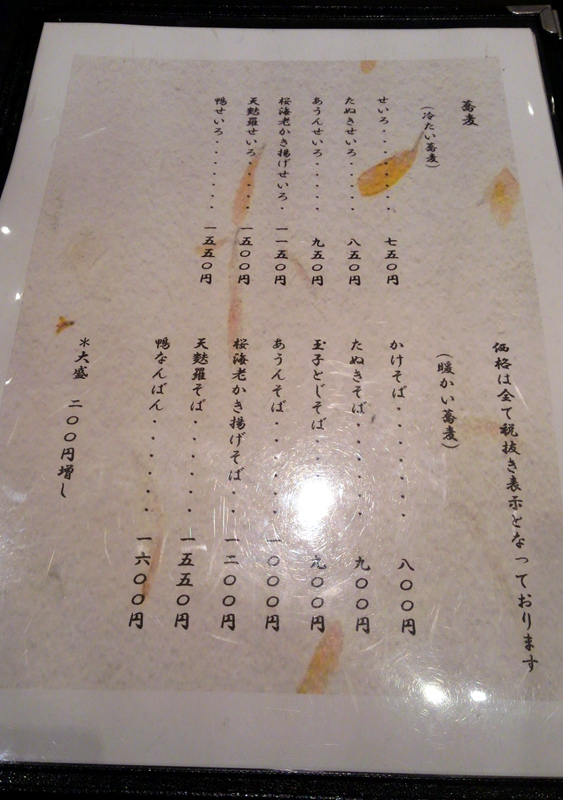 蕎麦
(冷たい蕎麦)
せいろ・・・・・・・七五〇円
たぬきせいろ・・・・・八五〇円
あうんせいろ・・・・・九五〇円
桜海老かき揚げせいろ・一一五〇円
天麩羅せいろ・・・・・一五〇〇円
鴨せいろ・・・・・・・一五五〇円
価格は全て税抜き表示となっております
(暖かい蕎麦)
かけそば・・・・・・・八〇〇円
たぬきそば・・・・・・九〇〇円
玉子とじそば・・・・・九〇〇円
あうんそば・・・・・・一〇〇〇円
桜海老かき揚げそば・・一二〇〇円
天麩羅そば・・・・・・一五五〇円
鴨なんばん・・・・・・一六〇〇円
*大盛 二〇〇円増し